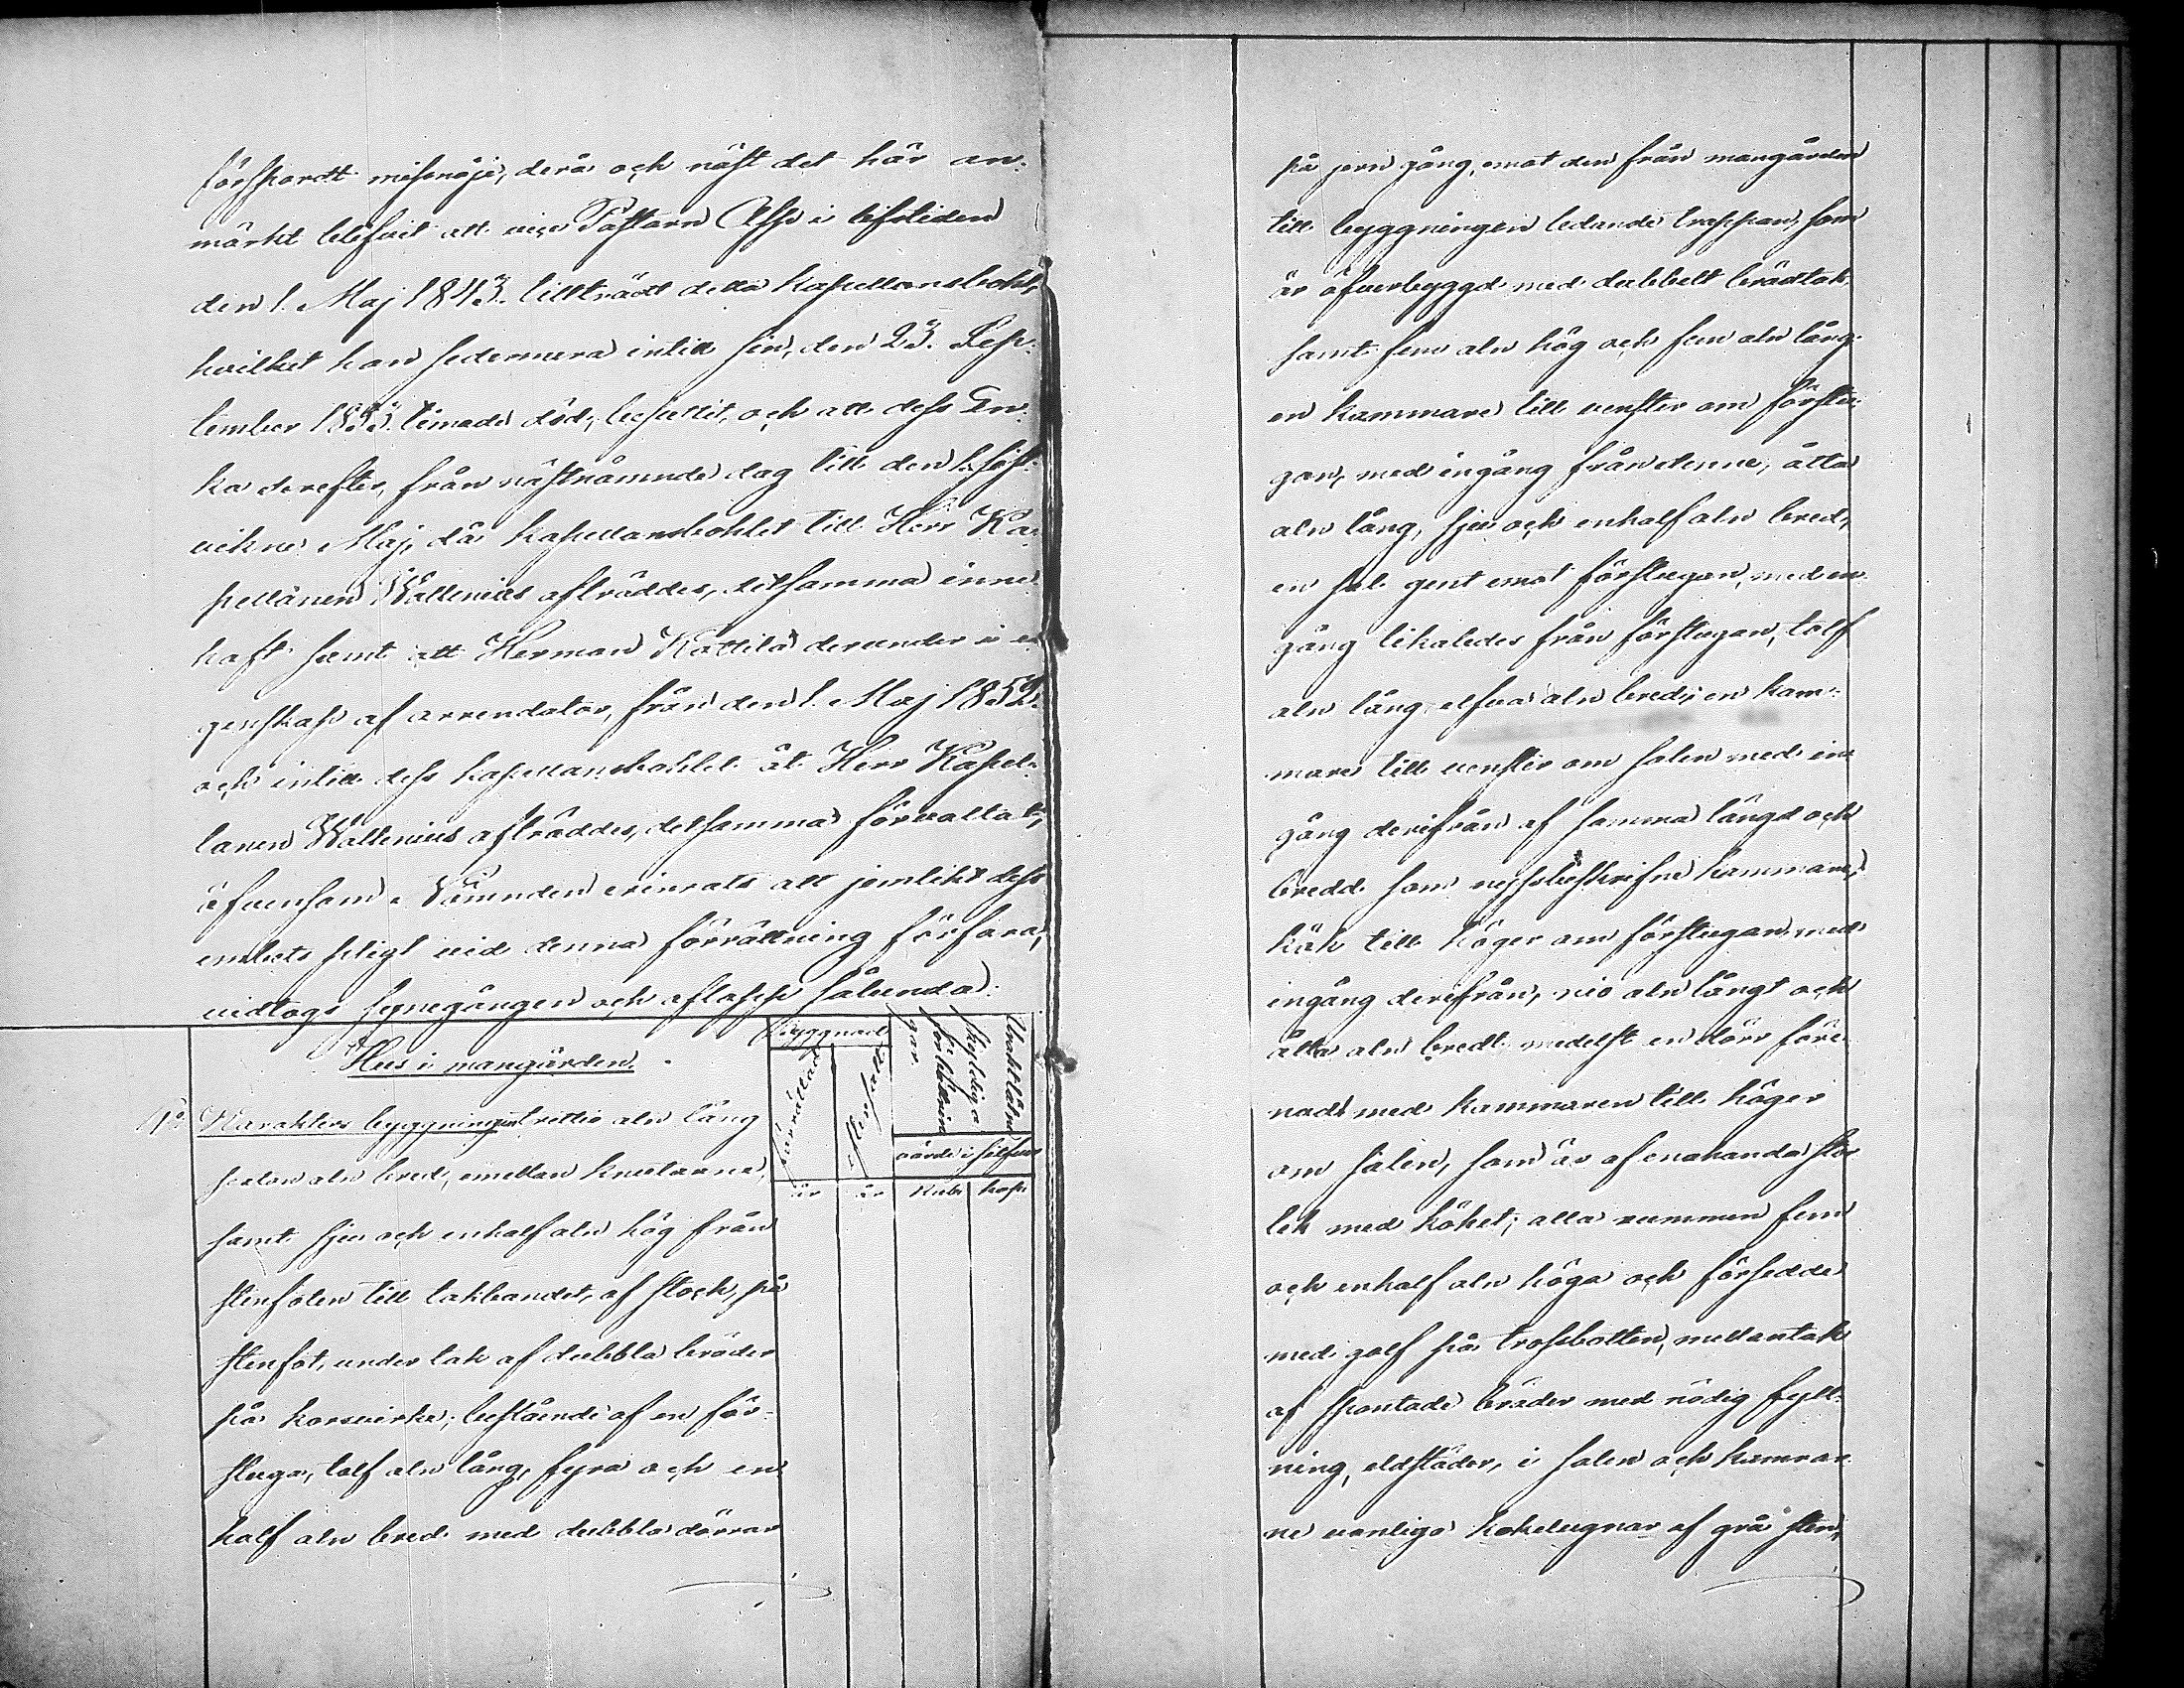 försport missnöje, derå och näst det här an-
märkt blifvit att vice Pastorn Alfse i lifstiden
den 1. Maj 1843. tillträdt detta kapellansbohl,
hvilket han sedermera intill sin, den 23. Sep-
tember 1853. timade död, besuttit, och att dess En-
ka derefter, från nästnämnde dag till den 1. sist-
vikne Maj, då kapellansbohlet till Herr Ka-
pellanen Wallenius afträddes, detsamma inne-
haft samt att Herman Kattila derunder i e-
genskap af arrendator, från den 1. Maj 1852.
och intill dess kapellansbohlet åt Herr Kapel-
lanen Wallenius afträddes, detsamma förvaltat,
äfvensom Nämnden erinrats att jemlikt dess
embets pligt vid denna förrättning förfara,
vidtogs synegången och aflopp sålunda:
Hus i mangården.
Byggnad
förrättad
år
år
skyldiga
förbättrin
gar.
värde i silfver
Rub. kop.
N:o 1. Karakters byggningen trettio aln lång
sexton aln bred, emellan knutarne,
samt sju och enhalf aln hög från
stenfoten till takbandet, af stock, på
stenfot, under tak af dubbla bräder
på korsvirke; bestående af en för-
stuga, tolf aln lång, fyra och en
half aln bred med dubbla dörrar
på jern gång, emot den från mangården
till byggningen ledande trappan, som
är öfverbyggd med dubbelt brädtak
samt fem aln hög och fem aln lång
en kammare till venster om förstu-
gan, med ingång från denne, åtta
aln lång, sju och enhalf aln bred,
en sal gent emot förstugan, med in-
gång likaledes från förstugan, tolf
aln lång elfva aln bred; en kam-
mare till venster om salen med in-
gång derifrån af samma längd och
bredd som nyssbeskrifne kammare,
kök till höger om förstugan med
ingång derifrån, nio aln långt och
åtta aln bredt medelst en dörr före-
nadt med kammaren till höger
om salen, som är af enahanda stor-
lek med köket; alla rummen fem
och enhalf aln höga och försedde
med golf på trossbotten, mellantak
af spontade bräder med nödig fyll-
ning, eldstäder, i salen och kamrar-
ne vanliga kakelugnar af grå sten,